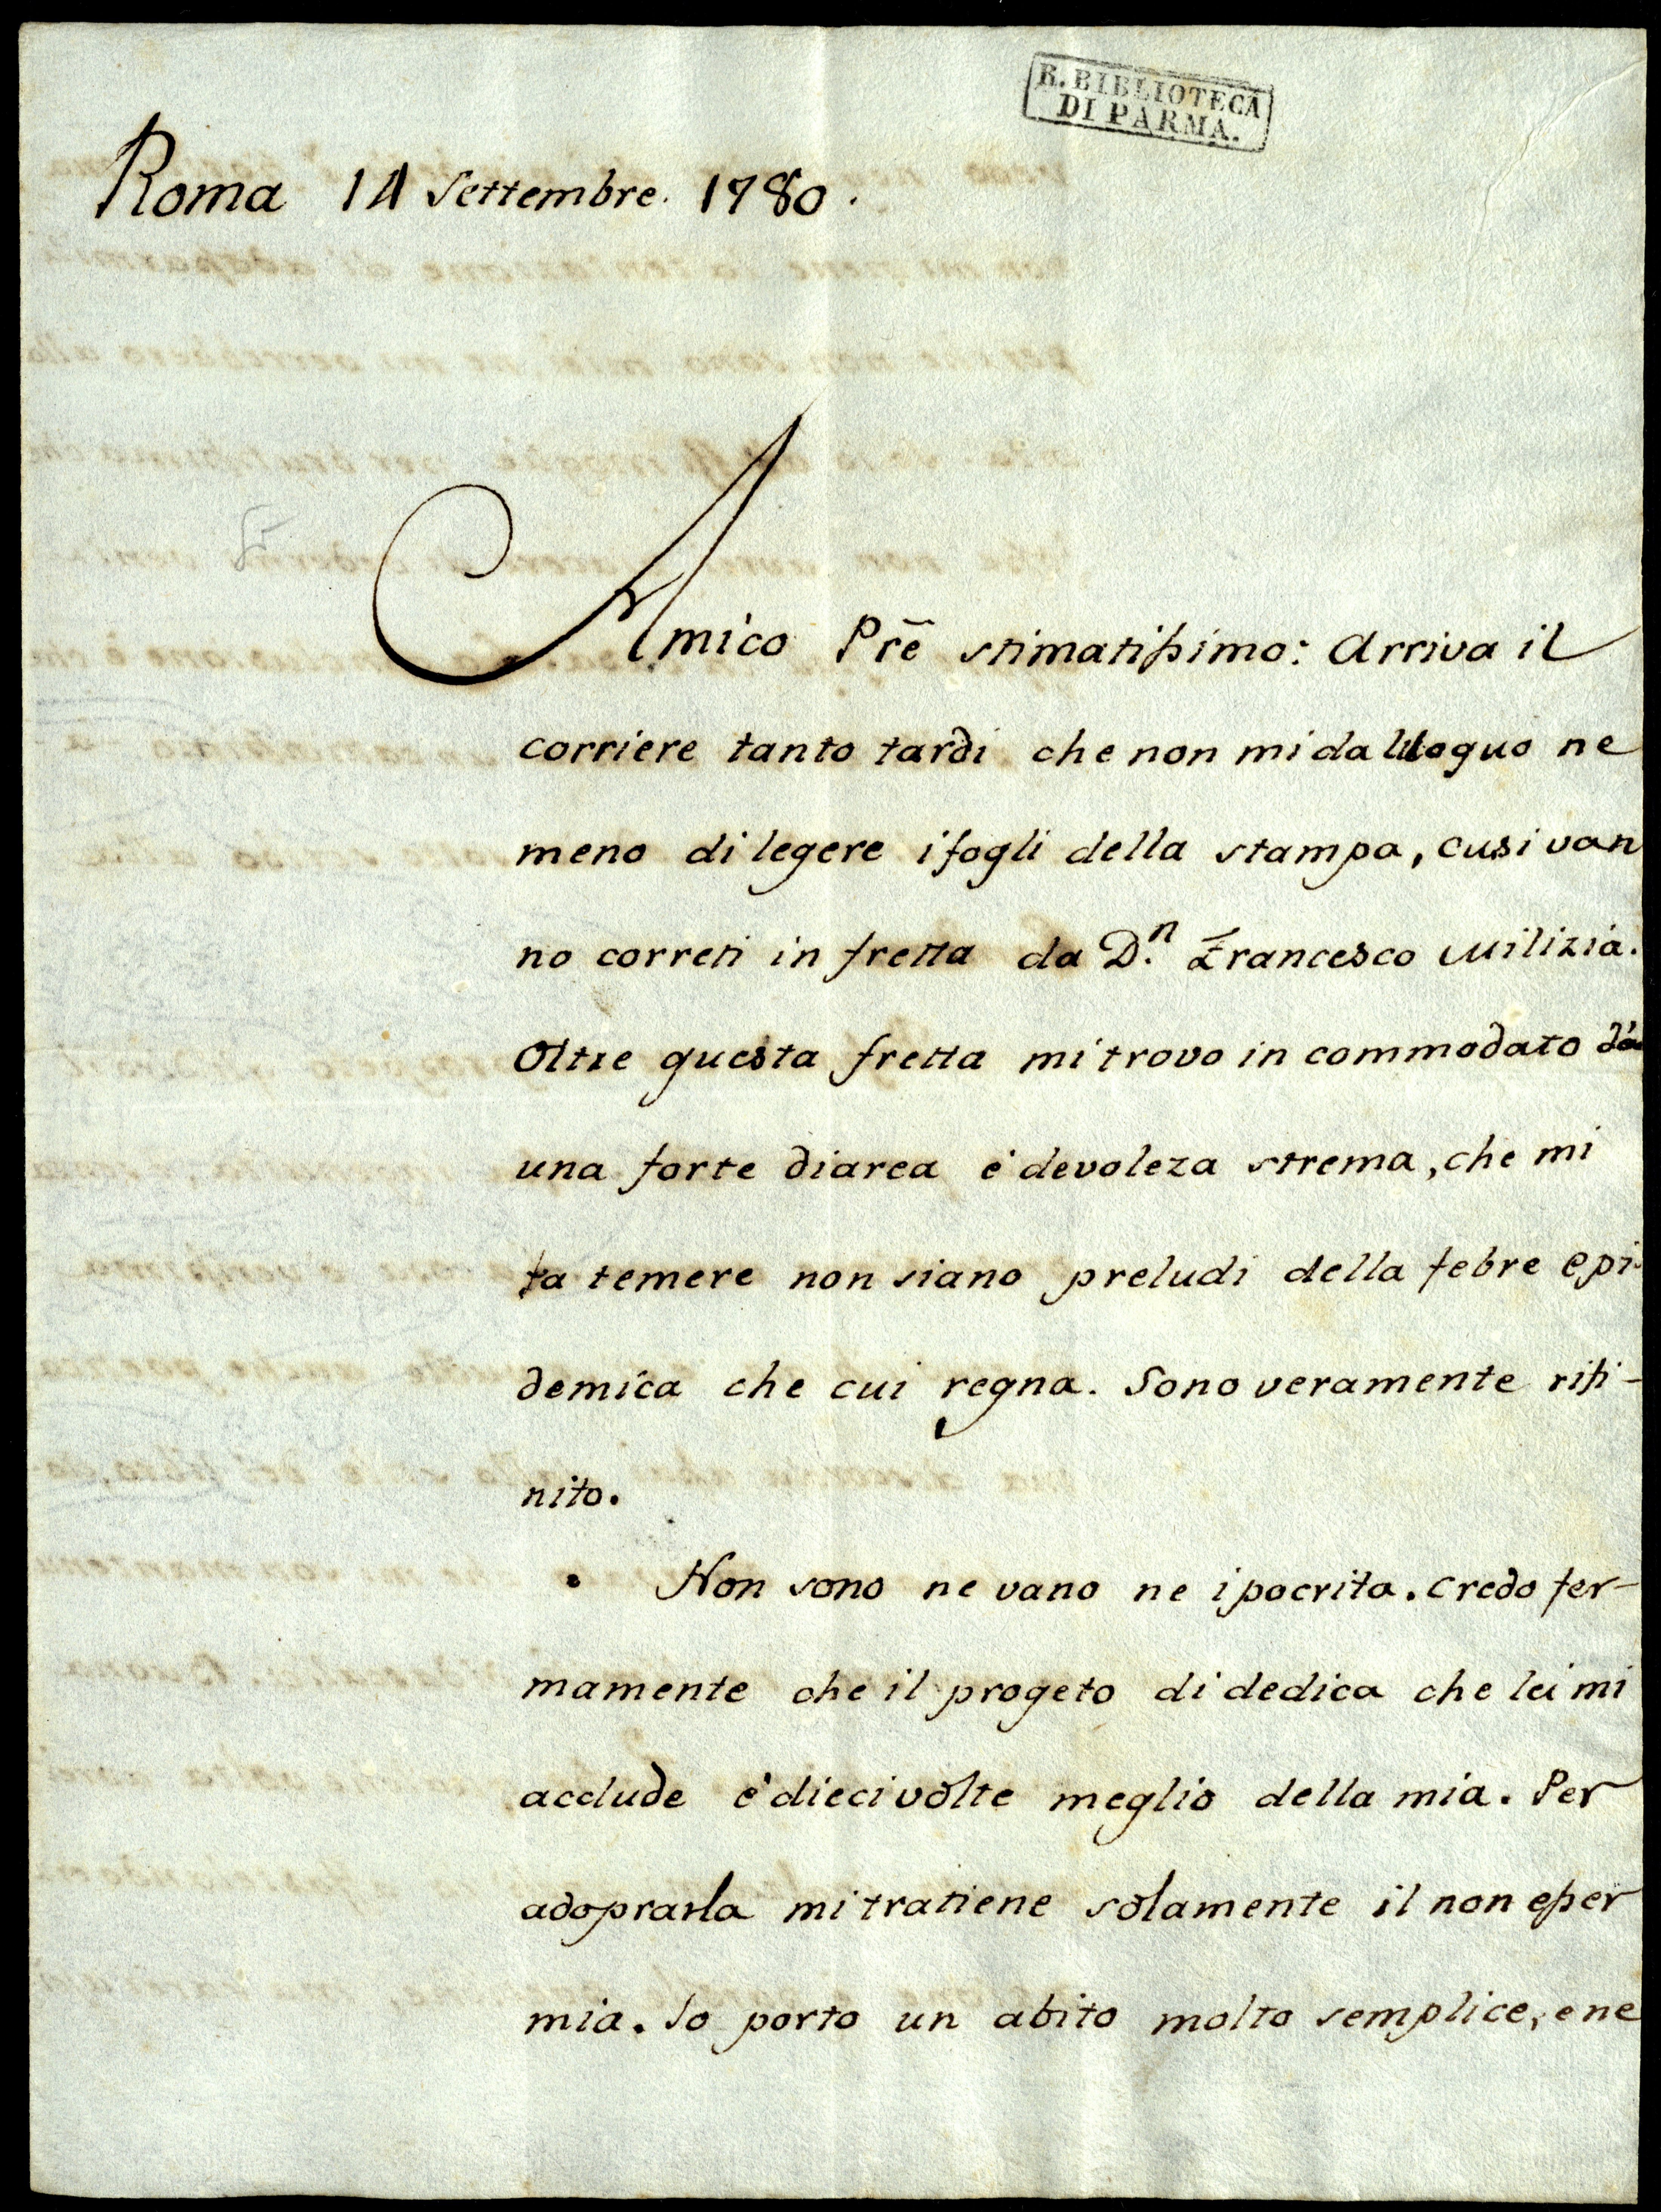 R. BIBLIOTECA
DI PARMA.
Roma 14 Settembre. 1780.
Amico Prē stimatissimo: Arriva il
corriere tanto tardi che non mi da luoguo ne
meno di legere i fogli della stampa, cusi van
no correti in fretta da D.n Francesco Milizia.
Oltre questa fretta mi trovo in commodato da
una forte diarea e' devoleza strema, che mi
fa temere non siano preludi della febre epi-
demica che cui regna. Sono veramente rifi-
nito.
Non sono ne vano ne ipocrita. credo fer-
mamente che il progeto di dedica che lei mi
acclude e' dieci volte meglio della mia. Per
adoprarla mi tratiene solamente il non esser
mia. Io porto un abito molto semplice, e ne